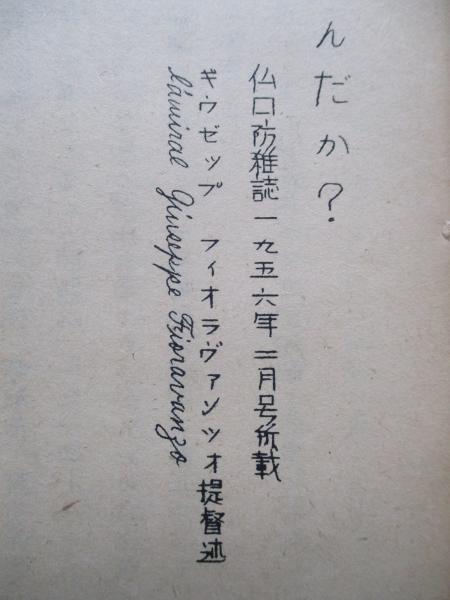 んだか?
仏口防雑誌一九五六年二月号所載
ギウゼップ フィオラヴァンツオ提督述
l'amiral Giuseppe Fioravanzo